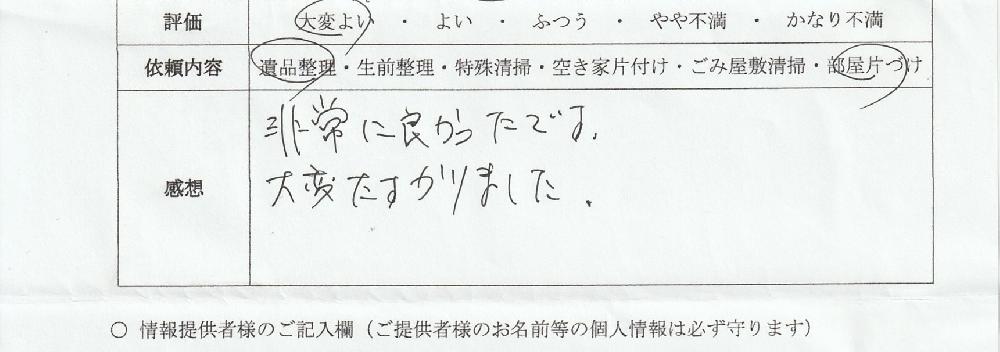 評価 大変よい ・ よい ・ ふつう ・ やや不満 ・ かなり不満
依頼内容 遺品整理・生前整理・特殊清掃・空き家片付け・ごみ屋敷清掃・部屋片づけ
感想
非常に良かったです.
大変たすかりました.
○ 情報提供者様のご記入欄（ご提供者様のお名前等の個人情報は必ず守ります）